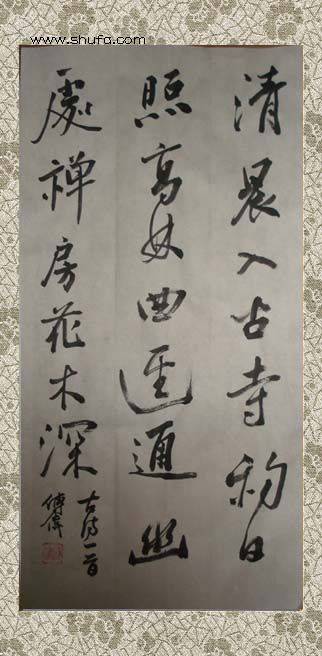 www.shufa.com
清晨入古寺初日
照高林曲逕通幽
處禅房花木深
古诗一首
傅偉